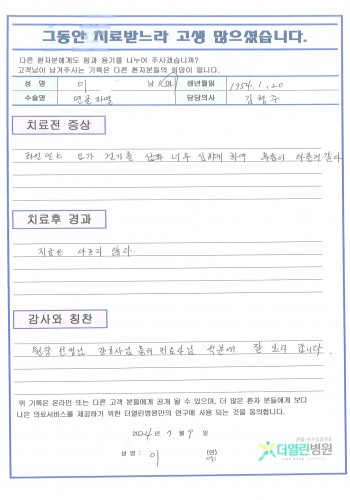 그동안 치료받느라 고생 많으셨습니다.
다른 환자분에게도 힘과 용기를 나누어 주시겠습니까?
고객님이 남겨주시는 기록은 다른 환자분들의 희망이 됩니다.
성 명 이 남 / 여 생년월일 1954. 1. 20
수술명 담당의사 김형주
치료전 증상
요가 걷기를 너무 심하게 하여 아픈것 같다
치료후 경과
치료후 아프지 않다.
감사와 칭찬
원장 선생님 간호사님 물리치료사님 덕분에 잘 보다 갑니다.
위 기록은 온라인 또는 다른 고객 분들에게 공개 될 수 있으며, 더 많은 환자 분들에게 보다
나은 의료서비스를 제공하기 위한 더열린병원만의 연구에 사용 되는 것을 동의합니다.
2024년 7월 9일
성 명 : 이 (인)
더열린병원